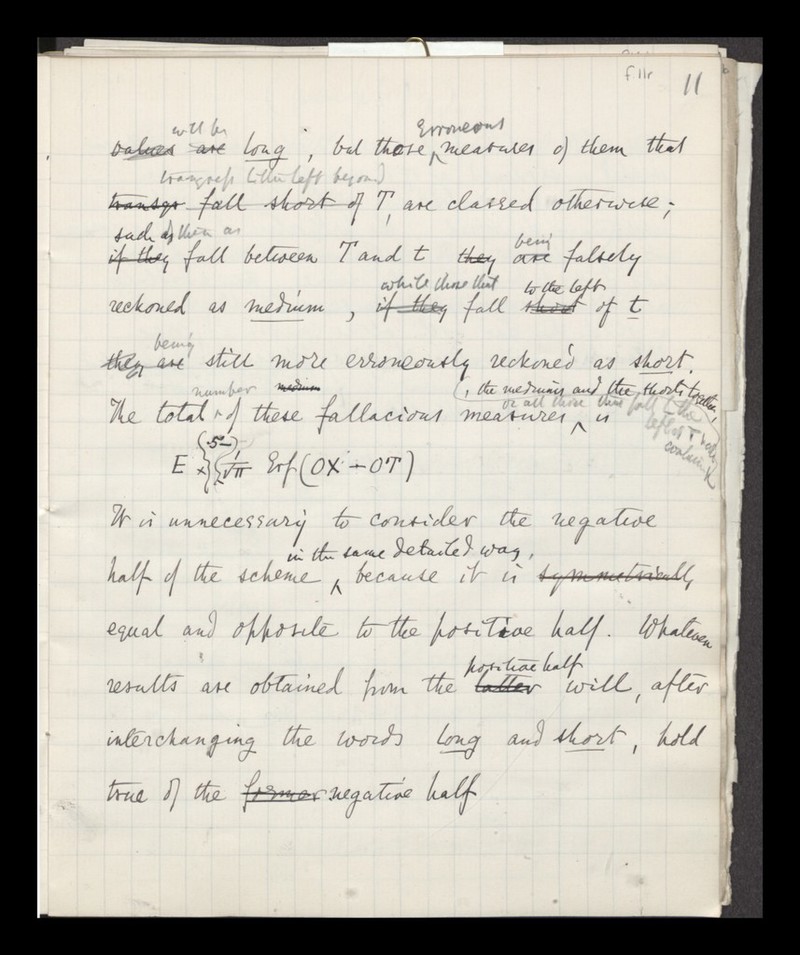 f.11r 11
will be Erroneous
values are long, but those measures of them that
transgress to the left beyond
transgr fall short of T, are classed otherwise;
such of them as being
if they fall between T and t they are falsely
while those that to the left
reckoned as medium, if they fall short of t
being
they are still more erroneously reckoned as short.
number medium , the mediums and the shorts together,
or all those that fall to the left of T
The total of these fallacious measures is
E × { .5 - 1/√π Erf (OX - OT)
It is unnecessary to consider the negative
in the same detailed way,
half of the scheme because it is symmetrically
equal and opposite to the positive half. Whatever
positive half
results are obtained from the latter will, after
interchanging the words long and short, hold
true of the former negative half